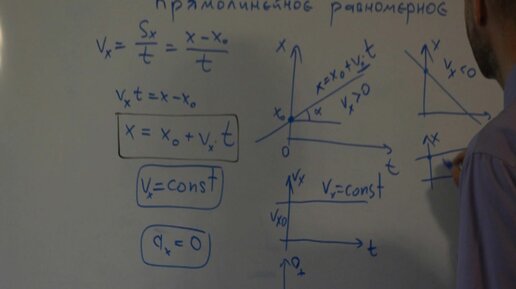 прямолинейное равномерное
Vₓ = Sₓ/t = x-x₀/t
Vₓt = x-x₀
x = x₀ + Vₓ·t
Vₓ = const
aₓ = 0
x
x = x₀ + Vₓ·t
Vₓ>0
x₀
α
0
t
Vₓ
Vₓ = const
Vₓ₀
t
x
Vₓ<0
x